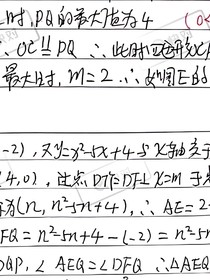 时, PQ的最大值为4
∴ OC∥PQ ∴ 此时四边形
最大时, m=2. ∴ 如图E的
-2), 又y=x²-5x+4与x轴交于
(4,0), 过点D作DF⊥x=m于
为(n, n²-5n+4), ∴ AE=2-
FQ=n²-5n+4-(-2)=n²-5n
DQP, ∠AEQ=∠DFQ ∴ △AEQ